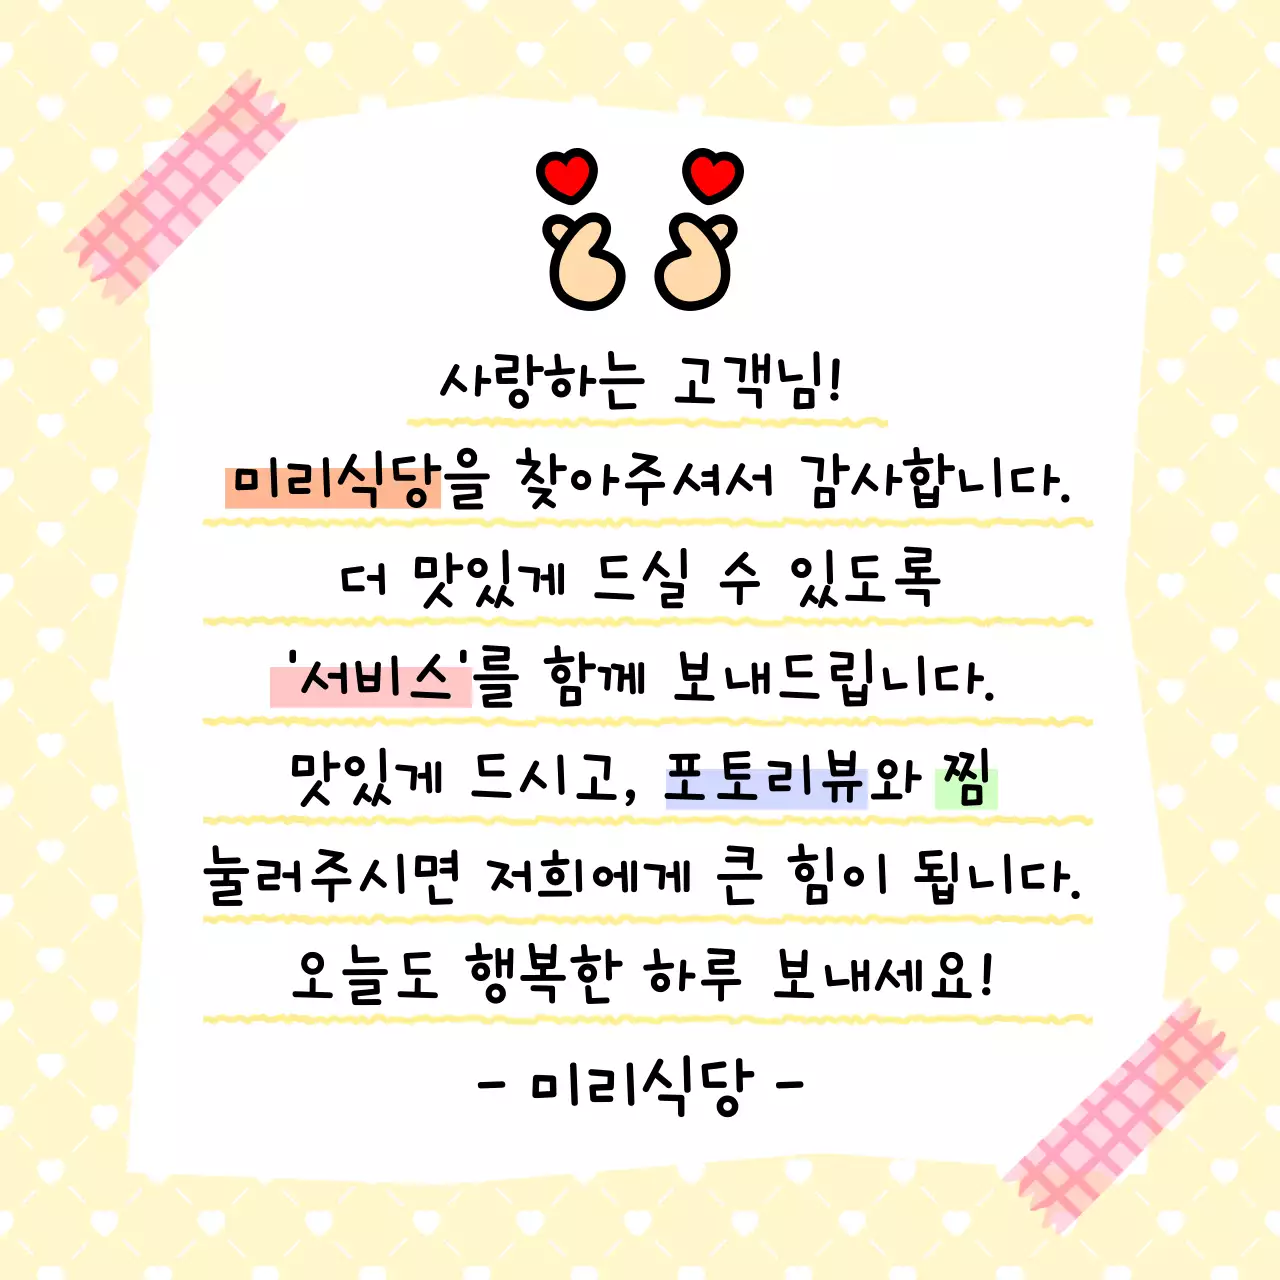 사랑하는 고객님!
미리식당을 찾아주셔서 감사합니다.
더 맛있게 드실 수 있도록
'서비스'를 함께 보내드립니다.
맛있게 드시고, 포토리뷰와 찜
눌러주시면 저희에게 큰 힘이 됩니다.
오늘도 행복한 하루 보내세요!
- 미리식당 -